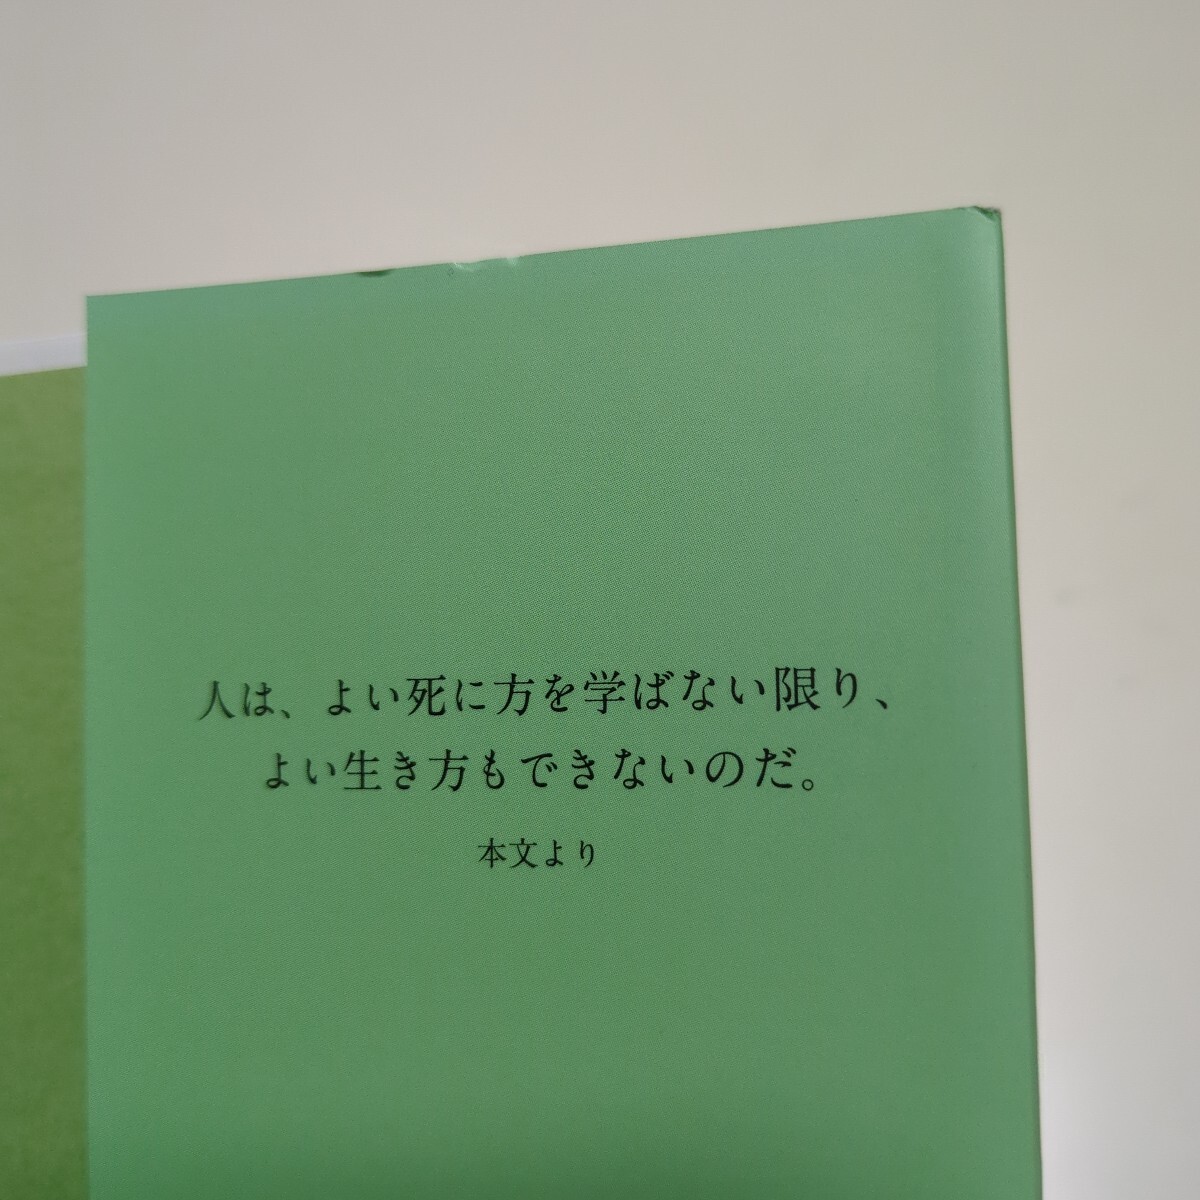 人は、よい死に方を学ばない限り、
よい生き方もできないのだ。
本文より